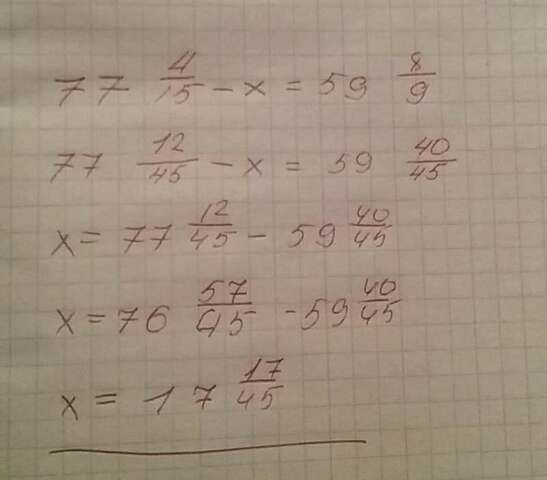 77 4/15 - x = 59 8/9
77 12/45 - x = 59 40/45
x = 77 12/45 - 59 40/45
x = 76 57/45 - 59 40/45
x = 17 17/45